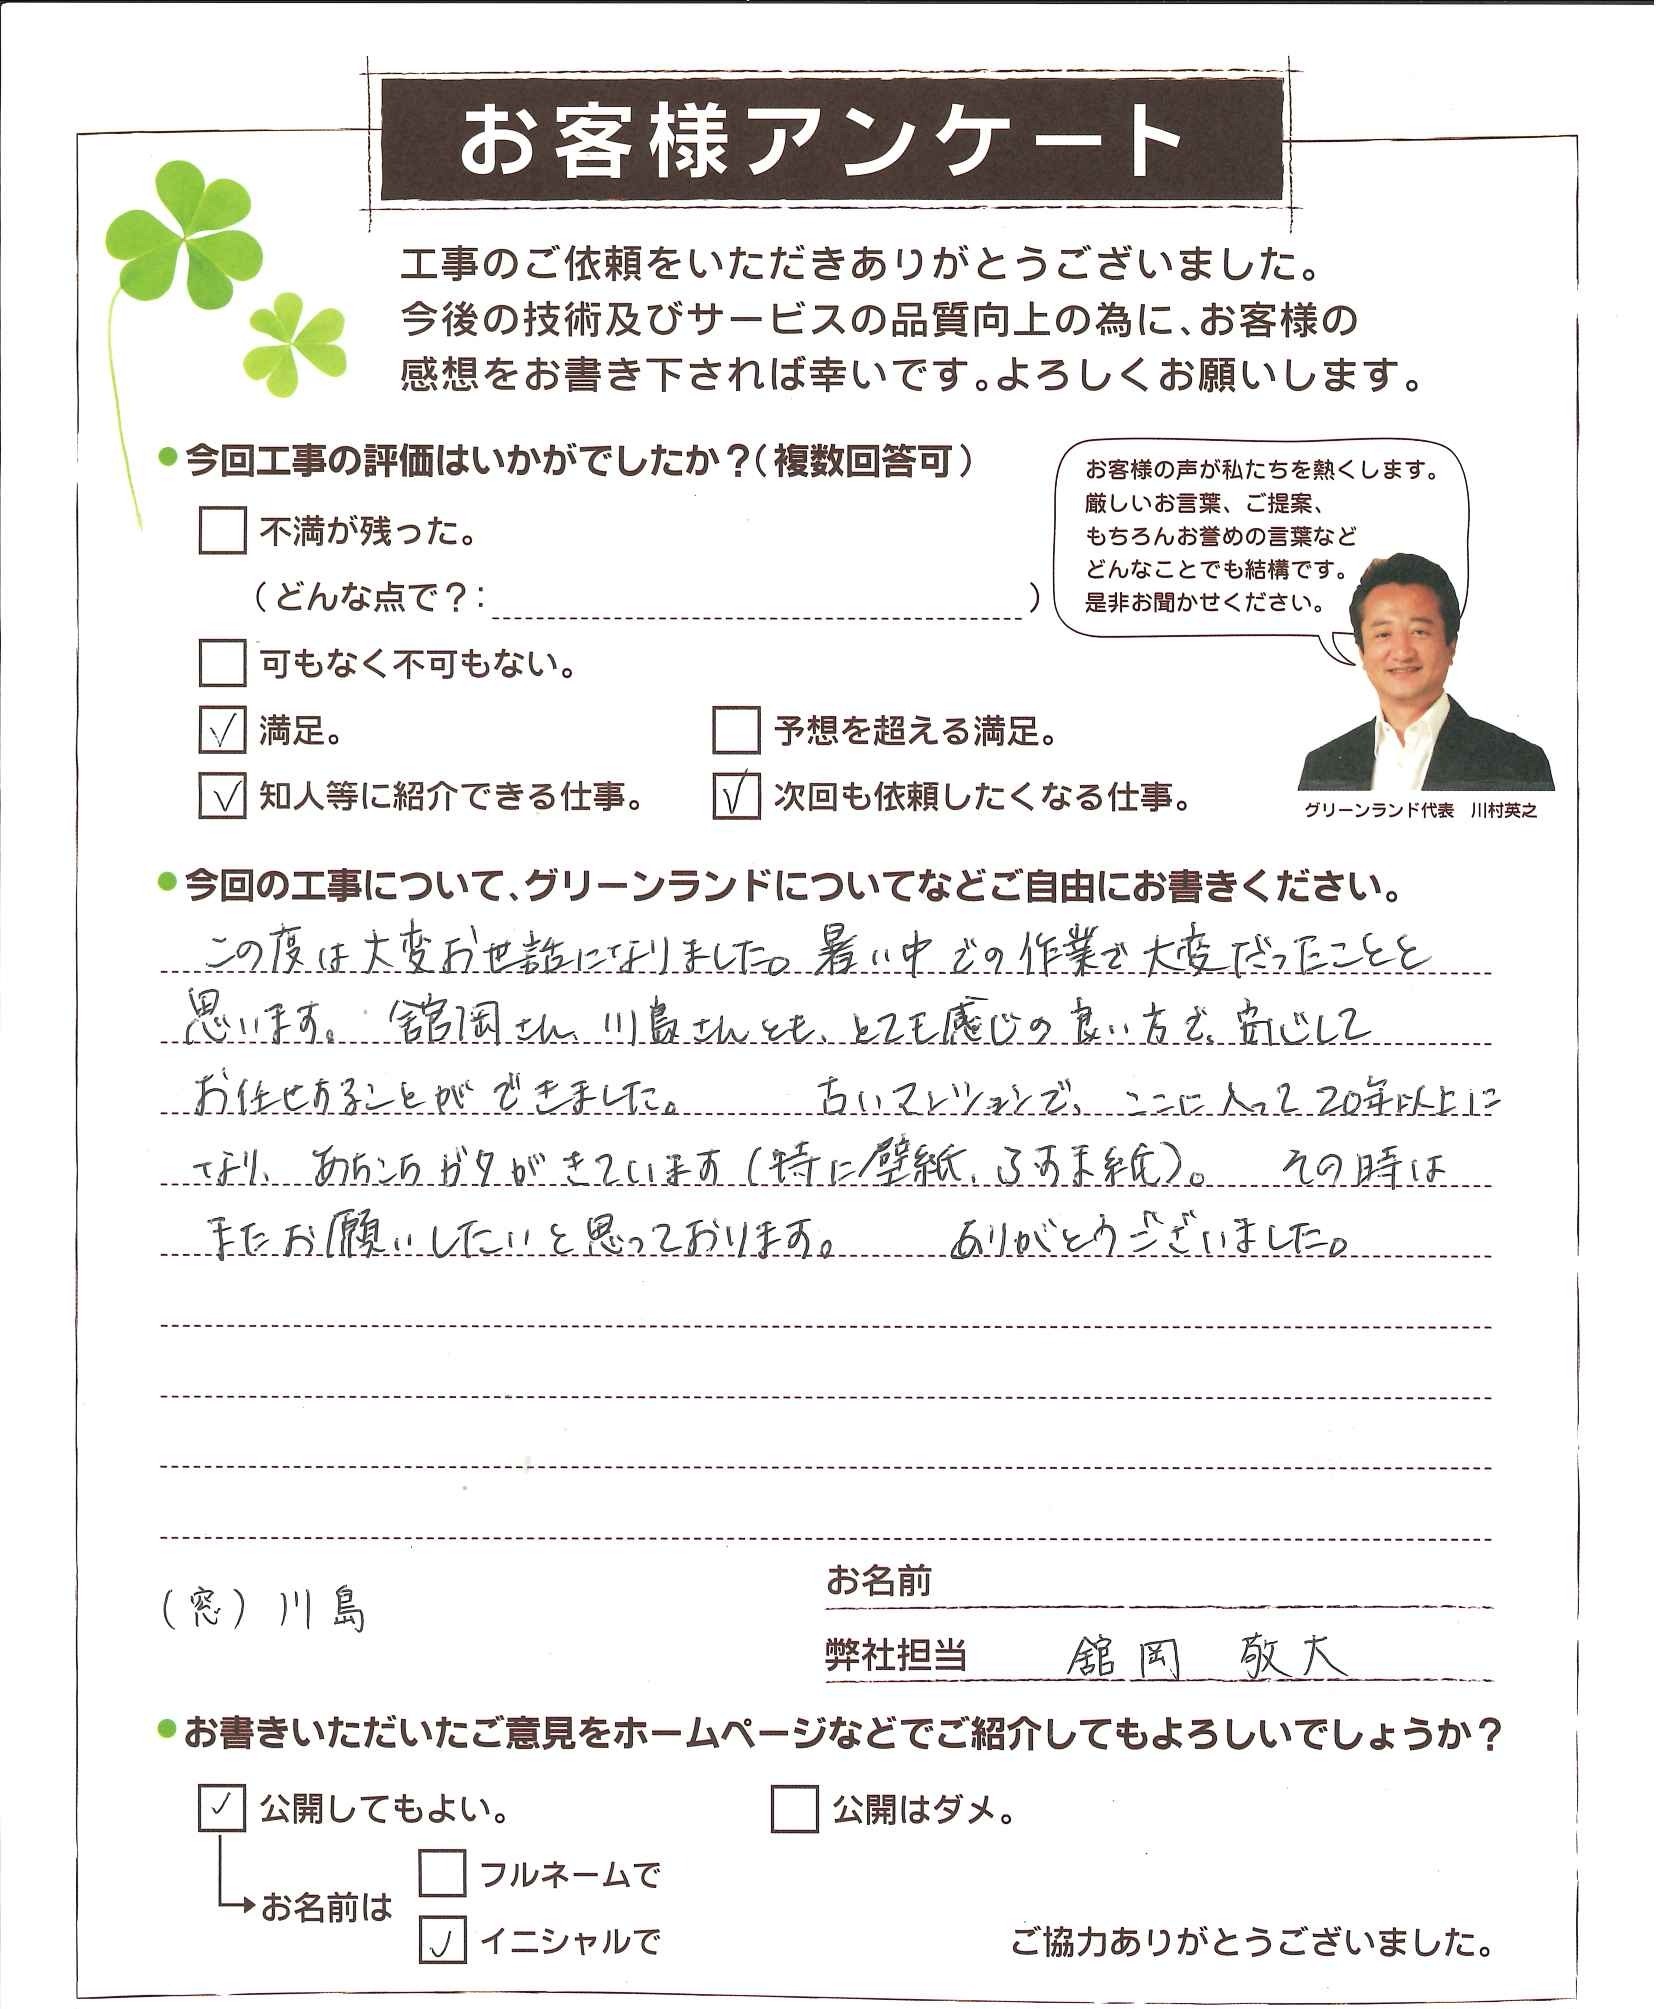 お客様アンケート
工事のご依頼をいただきありがとうございました。
今後の技術及びサービスの品質向上の為に、お客様の
感想をお書き下されば幸いです。よろしくお願いします。
●今回工事の評価はいかがでしたか？（複数回答可）
お客様の声が私たちを熱くします。
厳しいお言葉、ご提案、
もちろんお誉めの言葉など
どんなことでも結構です。
是非お聞かせください。
グリーンランド代表　川村英之
不満が残った。
（どんな点で？：　）
可もなく不可もない。
✓ 満足。　予想を超える満足。
✓ 知人等に紹介できる仕事。　✓ 次回も依頼したくなる仕事。
●今回の工事について、グリーンランドについてなどご自由にお書きください。
この度は大変お世話になりました。暑い中での作業で大変だったことと
思います。舘岡さん、川島さんとも、とても感じの良い方で、安心して
お任せすることができました。　古いマンションで、ここに入って20年以上に
なり、あちこちガタがきています（特に壁紙、ふすま紙）。　その時は
またお願いしたいと思っております。　ありがとうございました。
お名前
（窓）川島
弊社担当　舘岡　敬大
●お書きいただいたご意見をホームページなどでご紹介してもよろしいでしょうか？
✓ 公開してもよい。　公開はダメ。
フルネームで
お名前は
✓ イニシャルで
ご協力ありがとうございました。